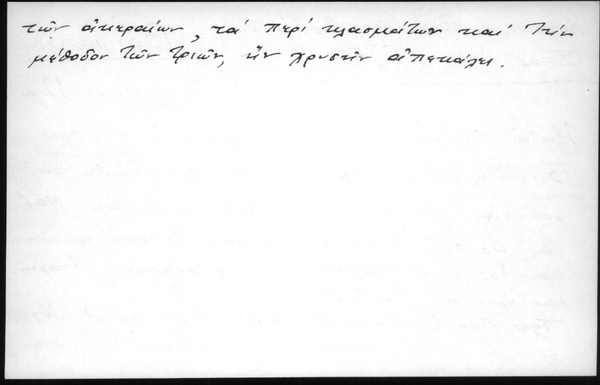 τῶν ἀκεραίων, τά περί κλασμάτων καί τήν
μέθοδον τῶν τριῶν, ἥν χρυσῆν ἀπεκάλει.